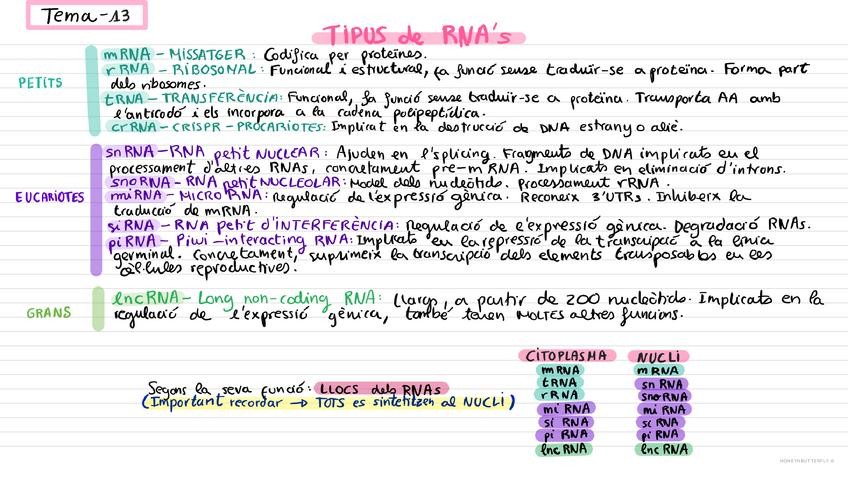 Tema-13
TIPUS de RNA's
PETITS
mRNA - MISSATGER : Codifica per proteïnes.
rRNA - RIBOSOMAL: Funcional i estructural, fa funció sense traduir-se a proteïna. Forma part
dels ribosomes.
tRNA - TRANSFERÈNCIA: Funcional, fa funció sense traduir-se a proteïna. Transporta AA amb
l'anticodó i els incorpora a la cadena polipeptídica.
crRNA - CRISPR - PROCARIOTES: Implicat en la destrucció de DNA estrany o aliè.
EUCARIOTES
snRNA - RNA petit NUCLEAR: Ajuden en l'splicing. Fragments de DNA implicats en el
processament d'altres RNAs, concretament pre-mRNA. Implicats en eliminació d'introns.
snoRNA - RNA petit NUCLEOLAR: Model dels nucleòtids. Processament rRNA.
miRNA - MICRO RNA: regulació de l'expressió gènica. Reconeix 3'UTRs. Inhibeix la
traducció de mRNA.
siRNA - RNA petit d'INTERFERÈNCIA: Regulació de l'expressió gènica. Degradació RNAs.
piRNA - Piwi-interacting RNA: Implicats en la repressió de la transcripció a la línia
germinal. Concretament, suprimeix la transcripció dels elements trasposables en les
cèl·lules reproductives.
GRANS
lncRNA - Long non-coding RNA: Llargs, a partir de 200 nucleòtids. Implicats en la
regulació de l'expressió gènica, també tenen MOLTES altres funcions.
Segons la seva funció: LLOCS dels RNAs
(Important recordar → TOTS es sintetitzen al NUCLI)
CITOPLASMA
mRNA
tRNA
rRNA
miRNA
siRNA
piRNA
lncRNA
NUCLI
mRNA
snRNA
snoRNA
miRNA
siRNA
piRNA
lncRNA